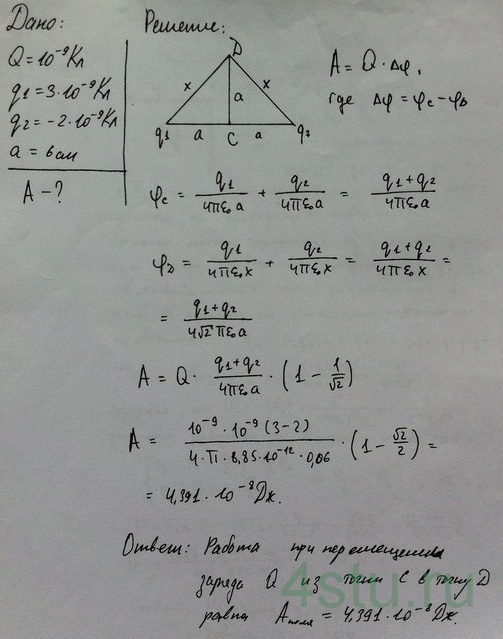 Дано:
Q = 10⁻⁹ Кл
q1 = 3·10⁻⁹ Кл
q2 = -2·10⁻⁹ Кл
a = 6 см
A - ?
Решение:
D
x x
a
q1 a C a q2
A = Q · Δφ,
где Δφ = φc - φD
φc = q1/4πε₀a + q2/4πε₀a = q1+q2/4πε₀a
φD = q1/4πε₀x + q2/4πε₀x = q1+q2/4πε₀x =
= q1+q2/4√2πε₀a
A = Q · q1+q2/4πε₀a · (1 - 1/√2)
A = 10⁻⁹·10⁻⁹(3-2)/4·π·8,85·10⁻¹²·0,06 · (1 - √2/2) =
= 4,391·10⁻⁸ Дж.
Ответ: Работа при перемещении
заряда Q из точки C в точку D
равна Aполя = 4,391·10⁻⁸ Дж.
4stu.ru